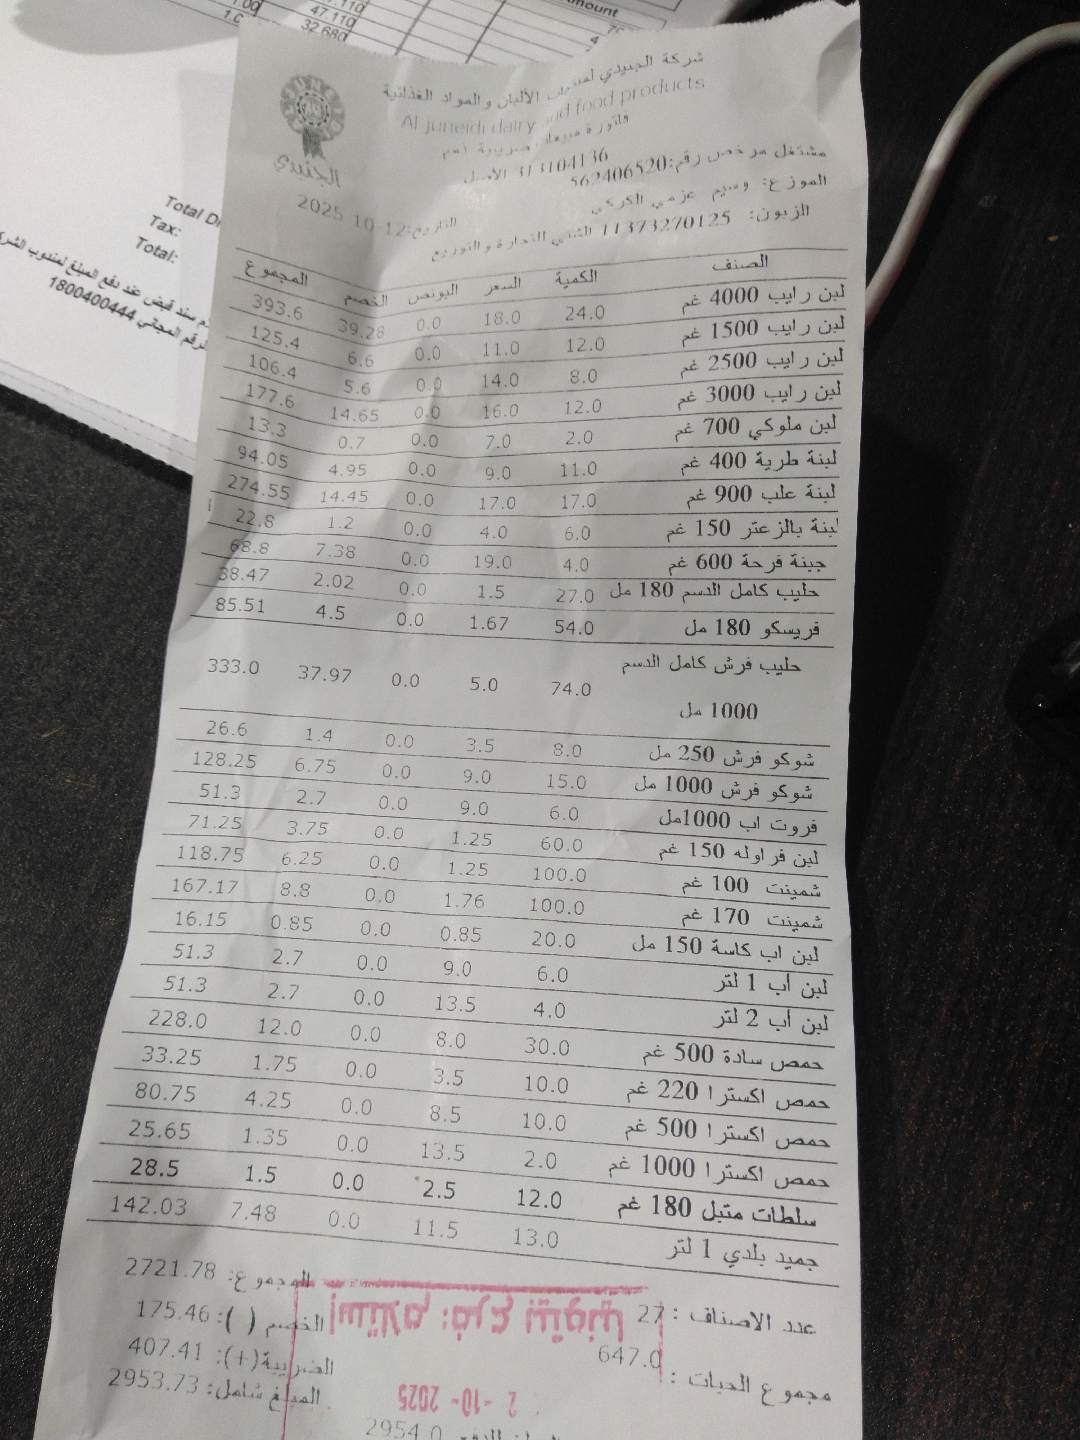 mount
47.110
32.680
1.00
Total
Tax:
Total:
1800400444
شركة الجنيدي لمنتجات الألبان والمواد الغذائية
Al juneidi dairy and food products
الجنيدي
فاتورة مبيعات ضريبية رقم
313104136 الأصل
مشتغل مرخص رقم:562406520
الموزع: وسيم عزمي الكركي
التاريخ:12-10-2025
الزبون: 11373270125 الشني التجارة والتوزيع
الصنف الكمية السعر البونص الخصم المجموع
لبن رايب 4000 غم 24.0 18.0 0.0 39.28 393.6
لبن رايب 1500 غم 12.0 11.0 0.0 6.6 125.4
لبن رايب 2500 غم 8.0 14.0 0.0 5.6 106.4
لبن رايب 3000 غم 12.0 16.0 0.0 14.65 177.6
لبن ملوكي 700 غم 2.0 7.0 0.0 0.7 13.3
لبنة طرية 400 غم 11.0 9.0 0.0 4.95 94.05
لبنة علب 900 غم 17.0 17.0 0.0 14.45 274.55
لبنة بالزعتر 150 غم 6.0 4.0 0.0 1.2 22.8
جبنة فرحة 600 غم 4.0 19.0 0.0 7.38 68.8
حليب كامل الدسم 180 مل 27.0 1.5 0.0 2.02 38.47
فريسكو 180 مل 54.0 1.67 0.0 4.5 85.51
حليب فرش كامل الدسم
1000 مل 74.0 5.0 0.0 37.97 333.0
شوكو فرش 250 مل 8.0 3.5 0.0 1.4 26.6
شوكو فرش 1000 مل 15.0 9.0 0.0 6.75 128.25
فروت اب 1000مل 6.0 9.0 0.0 2.7 51.3
لبن فراوله 150 غم 60.0 1.25 0.0 3.75 71.25
شمينت 100 غم 100.0 1.25 0.0 6.25 118.75
شمينت 170 غم 100.0 1.76 0.0 8.8 167.17
لبن اب كاسة 150 مل 20.0 0.85 0.0 0.85 16.15
لبن أب 1 لتر 6.0 9.0 0.0 2.7 51.3
لبن أب 2 لتر 4.0 13.5 0.0 2.7 51.3
حمص سادة 500 غم 30.0 8.0 0.0 12.0 228.0
حمص اكسترا 220 غم 10.0 3.5 0.0 1.75 33.25
حمص اكسترا 500 غم 10.0 8.5 0.0 4.25 80.75
حمص اكسترا 1000 غم 2.0 13.5 0.0 1.35 25.65
سلطات متبل 180 غم 12.0 2.5 0.0 1.5 28.5
جميد بلدي 1 لتر 13.0 11.5 0.0 7.48 142.03
عدد الاصناف : 27 المجموع: 2721.78
مجموع الحبات : 647.0 الخصم ( ): 175.46
الضريبة(+): 407.41
المبلغ شامل: 2953.73
2954.0
إستلام: فرع بيتونيا
2 -10- 2025